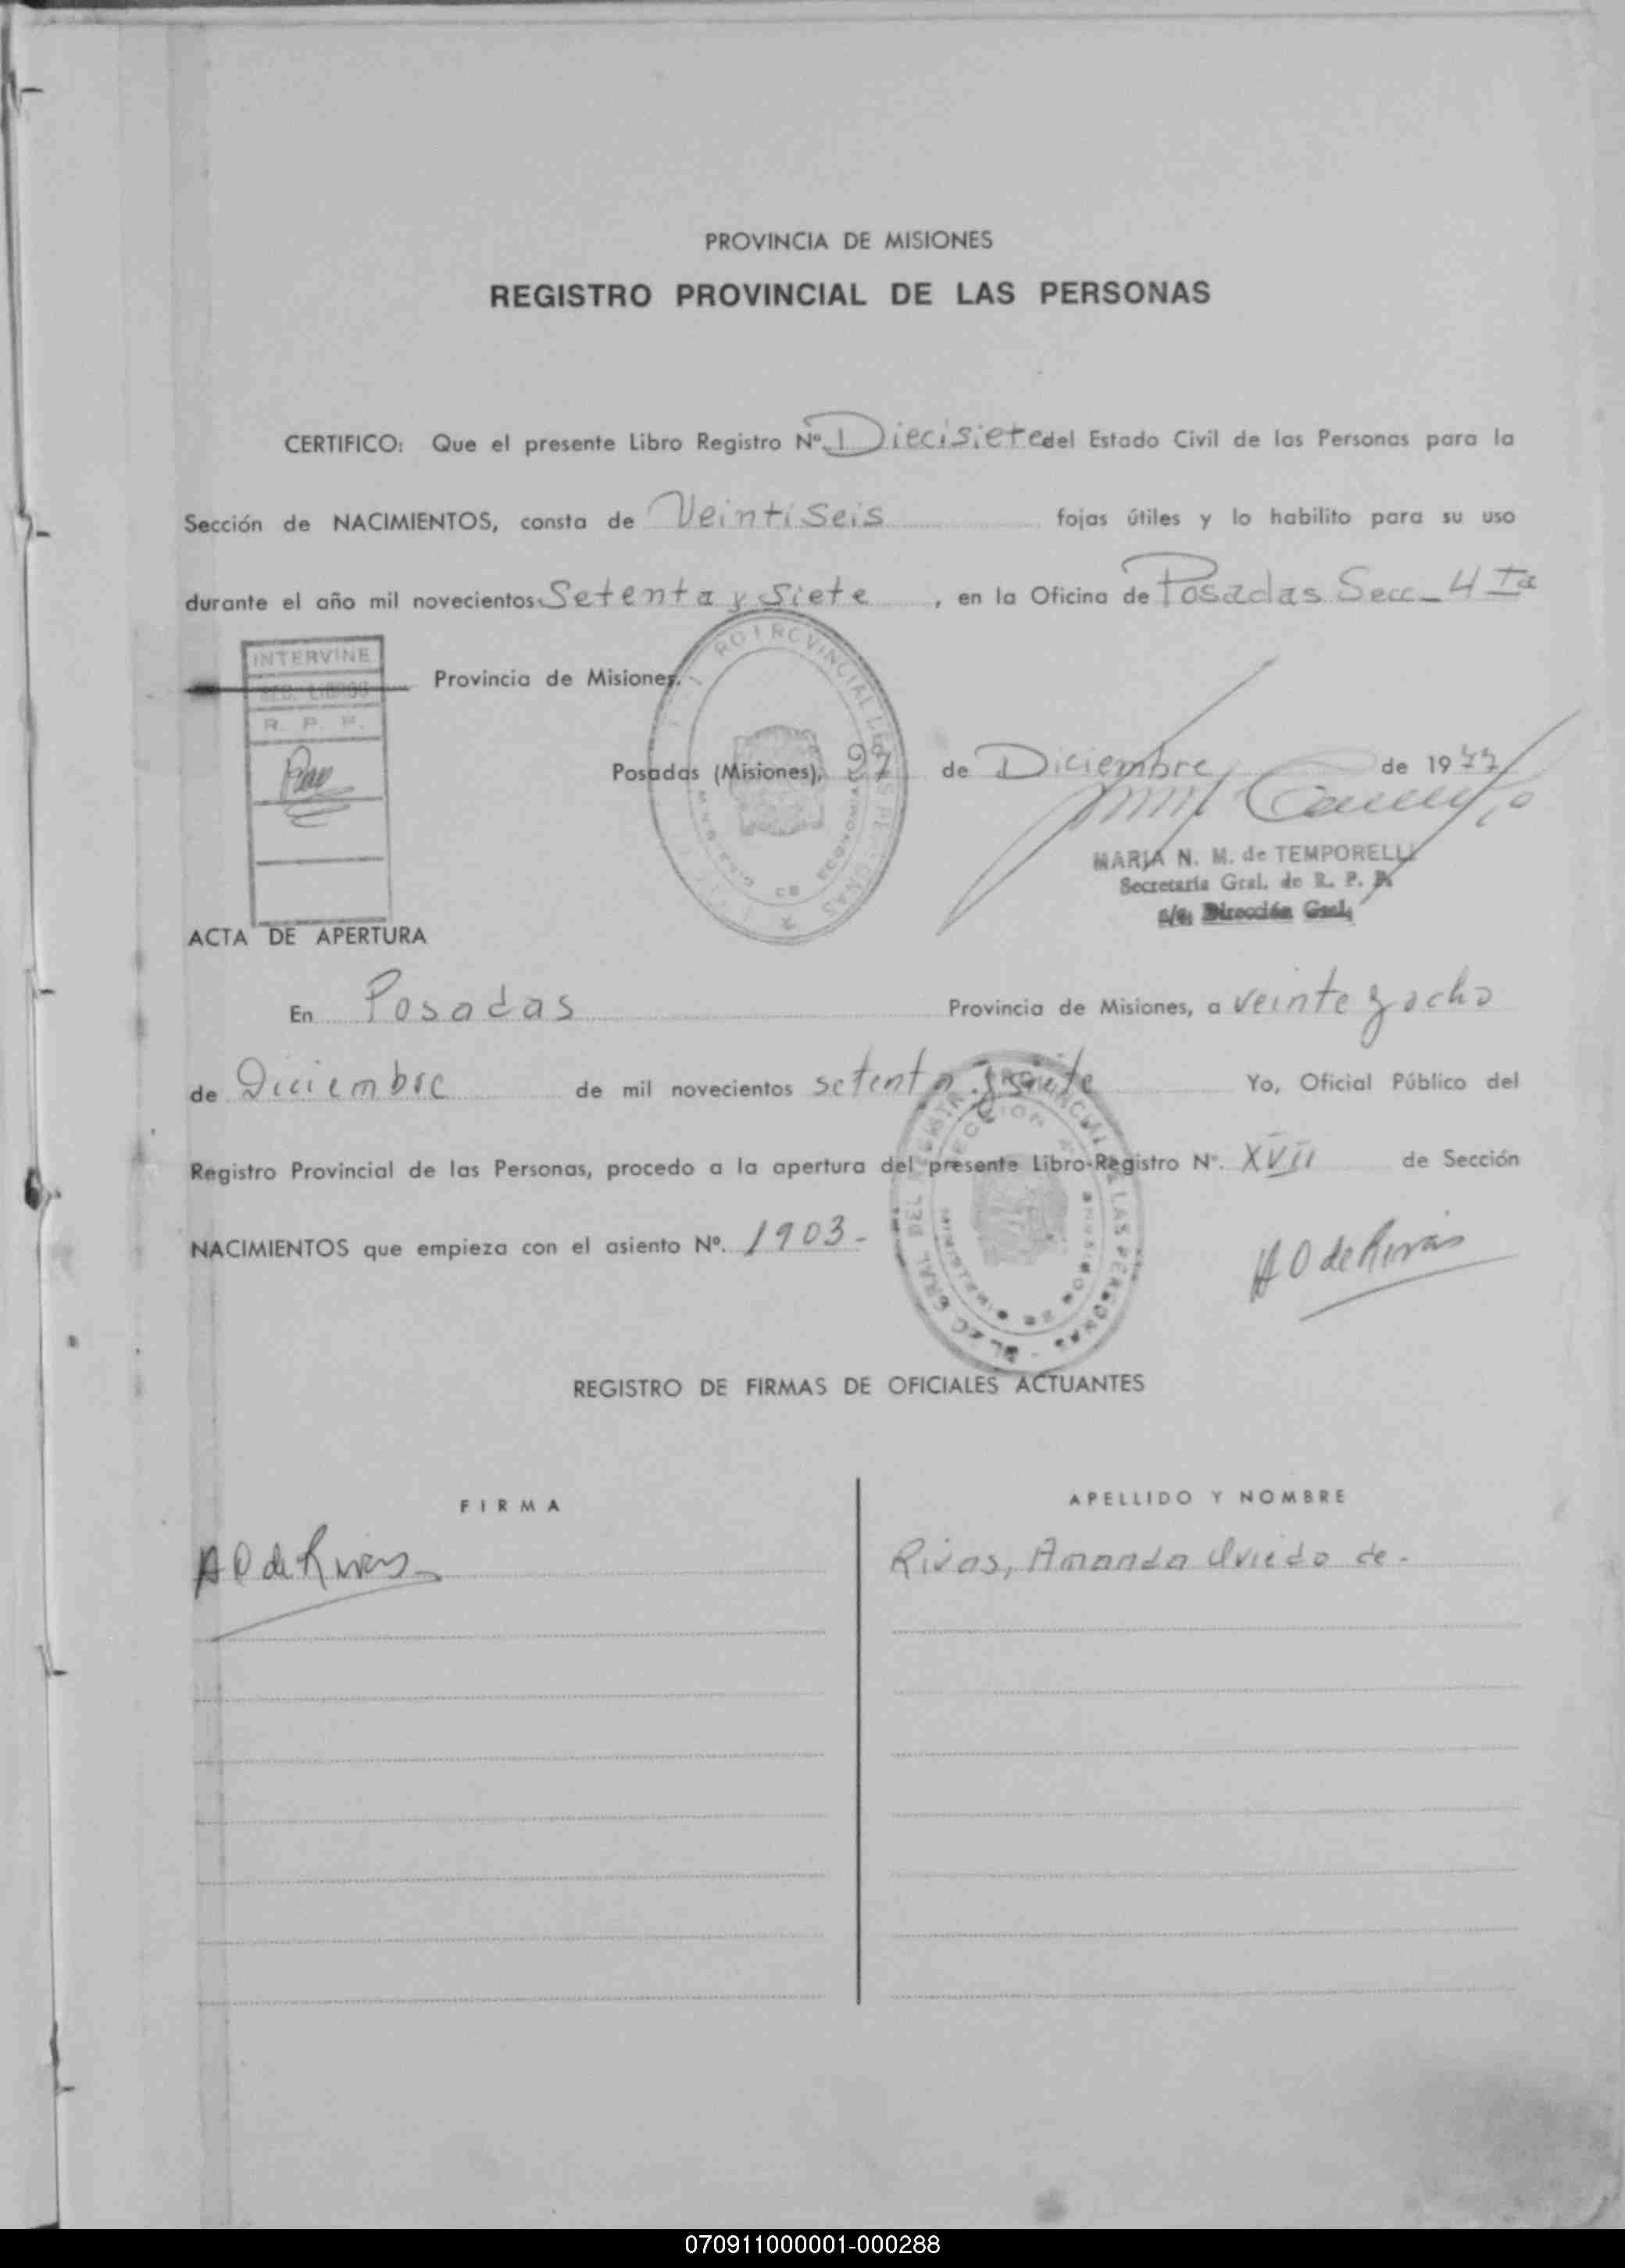 PROVINCIA DE MISIONES
REGISTRO PROVINCIAL DE LAS PERSONAS
CERTIFICO: Que el presente Libro Registro Nº Diecisiete del Estado Civil de las Personas para la
Sección de NACIMIENTOS, consta de Veintiseis fojas útiles y lo habilito para su uso
durante el año mil novecientos Setenta y Siete, en la Oficina de Posadas Secc_ 4ta
INTERVINE
SEC. LIBROS
R. P. P.
Provincia de Misiones.
Posadas (Misiones), 27 de Diciembre de 1977
MARIA N. M. de TEMPORELLI
Secretaria Gral. de R. P. P.
a/c. Dirección Gral.
ACTA DE APERTURA
En Posadas Provincia de Misiones, a veinte y ocho
de Diciembre de mil novecientos setenta y siete Yo, Oficial Público del
Registro Provincial de las Personas, procedo a la apertura del presente Libro-Registro Nº. XVII de Sección
NACIMIENTOS que empieza con el asiento Nº. 1903-
A O de Rivas
REGISTRO DE FIRMAS DE OFICIALES ACTUANTES
FIRMA
APELLIDO Y NOMBRE
A O de Rivas
Rivas, Amanda Oviedo de.
070911000001-000288